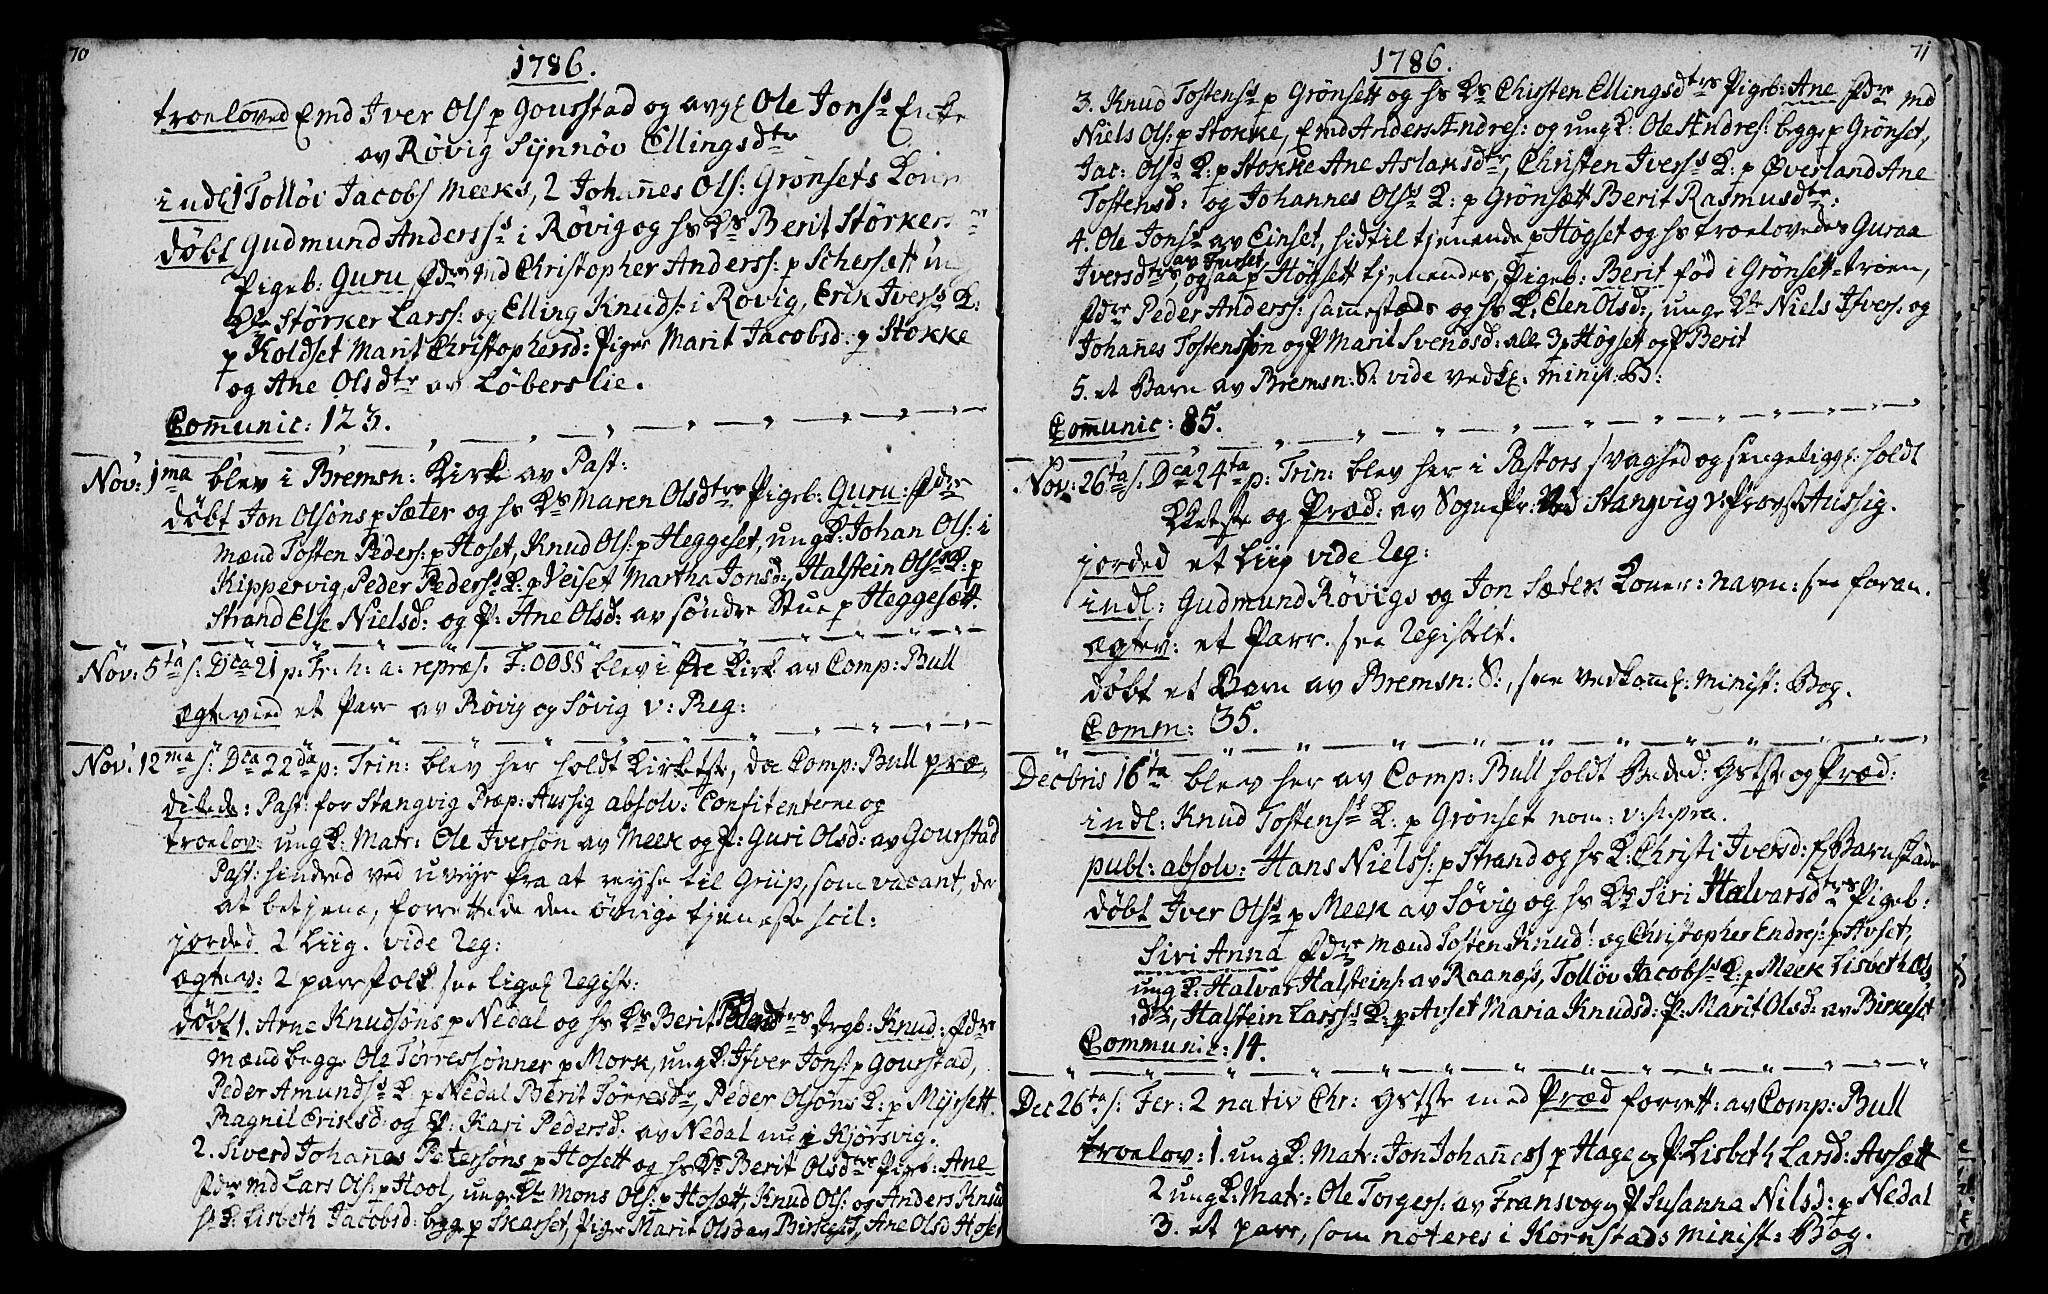 70
1786.
troeloved Emd Iver Ols p Gourstad og avg Ole Jonss Enke
av Røvig Synnøv Ellingsdtr
indl 1 Tolløv Jacobs Meeks, 2 Johannes Ols: Grønsets Koner
døbt Gudmund Anderss i Røvig og hs Ks Berit Størkers
Pigeb: Guru Fdre Md Christopher Anderss: p Schersætt ung
Kle Størker Larss: og Elling Knuds: i Røvig, Erik Iverss K:
p Koldset Marit Christophersd: Piger Marit Jacobsd: p Stokke
og Ane Olsdtr av Løberslie.
Communic: 123.
Nov: 1ma blev i Bremsn: Kirk av Past:
døbt Jon Olsøns p Sæter og hs Ks Maren Olsdtrs Pigeb: Guru: Fdre
Mænd Tosten Peders: p Hoset, Knud Ols: p Heggeset, ung K: Johan Ols: i
Kippervig, Peder Pederss K: p Veiset Martha Jonsd: Halstein Olss K: p
Strand Else Nielsd: og P: Ane Olsd: av søndre Stue p Heggesætt.
Nov: 5ta s: Dca 21 p: Tr: h: a: repræs. F: OOSS blev i Øre Kirk av Comp: Bull
ægtevied et Parr av Røvig og Søvig v: Reg:
Nov: 12ma s: Dca 22da p: Trin: blev her holdt Kirketste, da Comp: Bull præ-
dikede: Past: for Stangvig Præp: Aussig absolv: Confitenterne og
troelov: ung K: Matr: Ole Iversøn av Meek og P: Guri Olsd: av Gourstad
Past: hindred ved uveyr fra at reyse til Griip, som vacant, der
at betjene, forrettede den øvrige tjeneste scil:
jorded 2 Liig. vide Reg:
ægtev: 2 parrfolk see ligel Registr:
døbt 1. Arne Knudsøns p Nedal og hs Ks Berit dtrs Drgb: Knud: Fdre
Mænd begge Ole Tørressønner p Mork, ung K: Ifver Jons: p Gourstad,
Peder Amundss K: p Nedal Berit Tørresdtr, Peder Olsøns K: p Meisett
Ragnil Eriksd: og P: Kari Pedersd: av Nedal nu p Kjørsvig.
2. Siverd Johannes Petersøns p Hosett og hs Ks Berit Olsdtrs Pigb: Ane
Fdre Md Lars Ols p Hool, unge Kle Mons Ols: p Hosætt, Knud Ols: og Anders Knud
ss K: Lisbeth Jacobsd: begge p Skarset, Piger Marit Olsd av Birkeset, Ane Olsd Hoset
71
1786.
3. Knud Tostenss p Grønsett og hs Ks Chirsten Ellingsdtrs Pigeb: Ane Fdre Md
Niels Ols: p Stokke, Emd Anders Andres: og ung K: Ole Andres: begge p Grønset,
Jac: Olss K: p Stokke Ane Aslaksdtr, Christen Iverss K: p Øverland Ane
Tostensd: og Johannes Olss K: p Grønsett Berit Rasmusdtr:
4. Ole Jonss av Einset, hidtil tjenende p Høgset og hs troelovedes Guraa
Iversdtrs av Furset, ogsaa p Høgsett tjenendes, Pigeb: Berit fød i Grønsett-trøen,
Fdre Peder Anderss: sammesteds og hs K: Elen Olsd:, unge Kle Niels Ifvers: og
Johannes Tostensøn og P Marit Svendsd: alle 3 p Høgsett og P Berit
5. et Barn av Bremsn: S: vide vedk: minist: B:
Communic: 85.
Nov: 26ta s. Dca 24ta p: Trin: blev her i Pastors svaghed og sengeligg: holdt
Kketste og Præd: av Sognepr: ved Stangvig v: Provst Aussig.
jorded et Liip vide Reg:
indl: Gudmund Røvigs og Jon Sæter Koner: navn: see foran.
ægtev: et Parr. see Registelt.
døbt et Barn av Bremsn: S:, see vedkomm: minist: Bog.
Comm: 35.
Decbris 16ta blev her av Comp: Bull holdt Beded: Gstste og Præd:
indl: Knud Tostenss K: p Grønset nom: v: supra.
publ: absolv: Hans Nielss: p Strand og hs K: Christi Iversd: f Barnfade
døbt Iver Olss p Meek av Søvig og hs Ks Siri Halvarsdtrs Pigeb:
Siri Anna Fdre Mænd Tosten Knud: og Christopher Endres: p Avset,
ung K: Halvar Halsteins: av Raanæs, Tolløv Jacobss K: p Meek Lisbeth Ols
dtr, Halstein Larss K: p Avset Maria Knudsd: P: Marit Olsd: av Birkeset
Communic: 14.
Dec 26ta s: Fer: 2 nativ Chr: Gstste med Præd forrett: av Comp: Bull
troelov: 1. ung K: Matr: Jon Johanness p Hage og P: Lisbeth Larsd: Avsætt
2 ung K: Matr: Ole Torgers: av Fransvog og P Susanna Nilsd: p Nedal
3. et parr, som noteres i Kornstads minist: Bog.